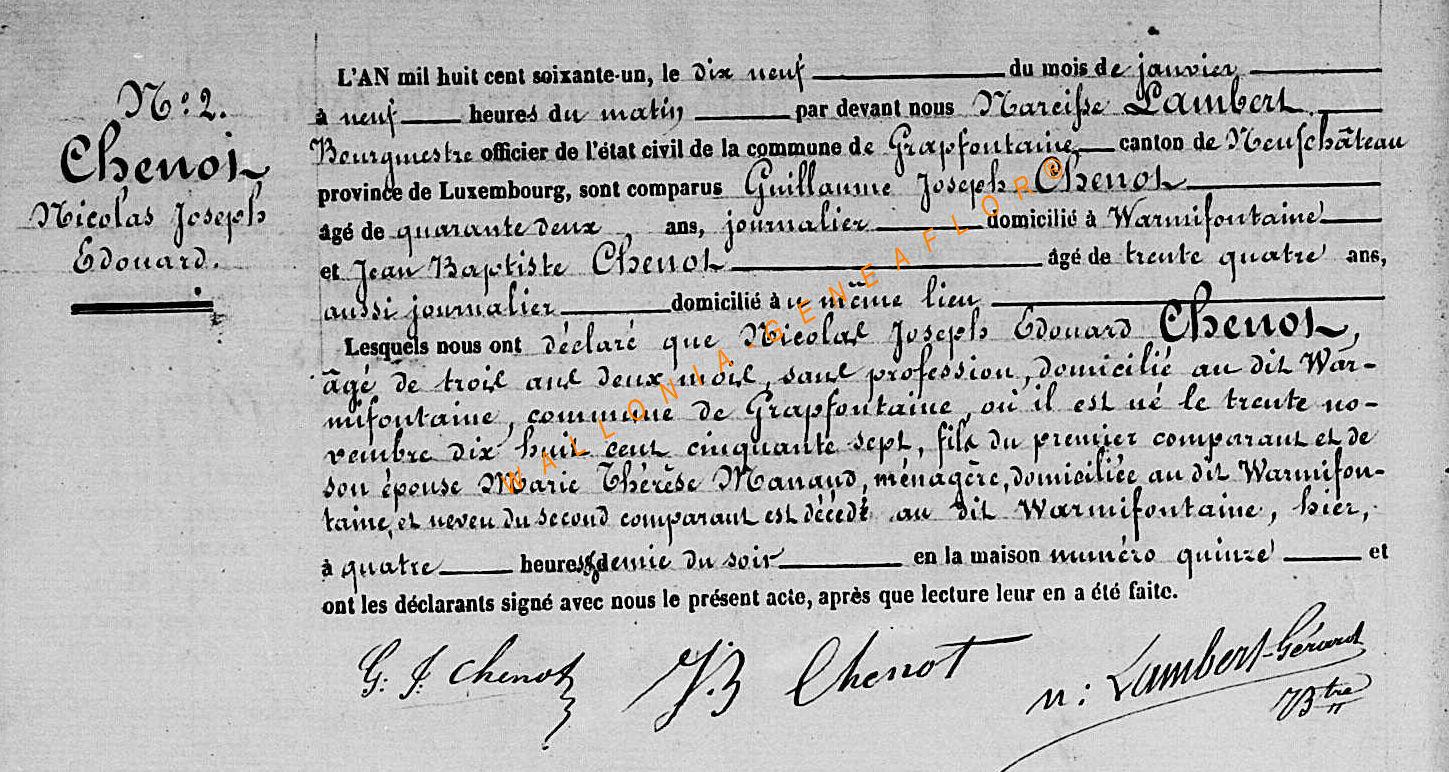 N.o 2.
Chenot
Nicolas Joseph
Edouard.
L'AN mil huit cent soixante-un, le dix neuf du mois de janvier
à neuf heures du matin par devant nous Narcisse Lambert
Bourgmestre officier de l'état civil de la commune de Grapfontaine, canton de Neufchâteau
province de Luxembourg, sont comparus Guillaume Joseph Chenot
âgé de quarante deux, ans, journalier domicilié à Warmifontaine
et Jean Baptiste Chenot âgé de trente quatre ans,
aussi journalier domicilié au même lieu
Lesquels nous ont déclaré que Nicolas Joseph Edouard Chenot,
âgé de trois ans deux mois, sans profession, domicilié au dit War-
mifontaine, commune de Grapfontaine, où il est né le trente no-
vembre dix huit cent cinquante sept, fils du premier comparant et de
son épouse Marie Thérèse Manand, ménagère, domiciliée au dit Warmifon-
taine, et neveu du second comparant est décédé au dit Warmifontaine, hier,
à quatre heures & demie du soir en la maison numéro quinze et
ont les déclarants signé avec nous le présent acte, après que lecture leur en a été faite.
G. J. Chenot J.B Chenot n: Lambert-Gérard
Btre
WALLONIA-GENEAFLOR©